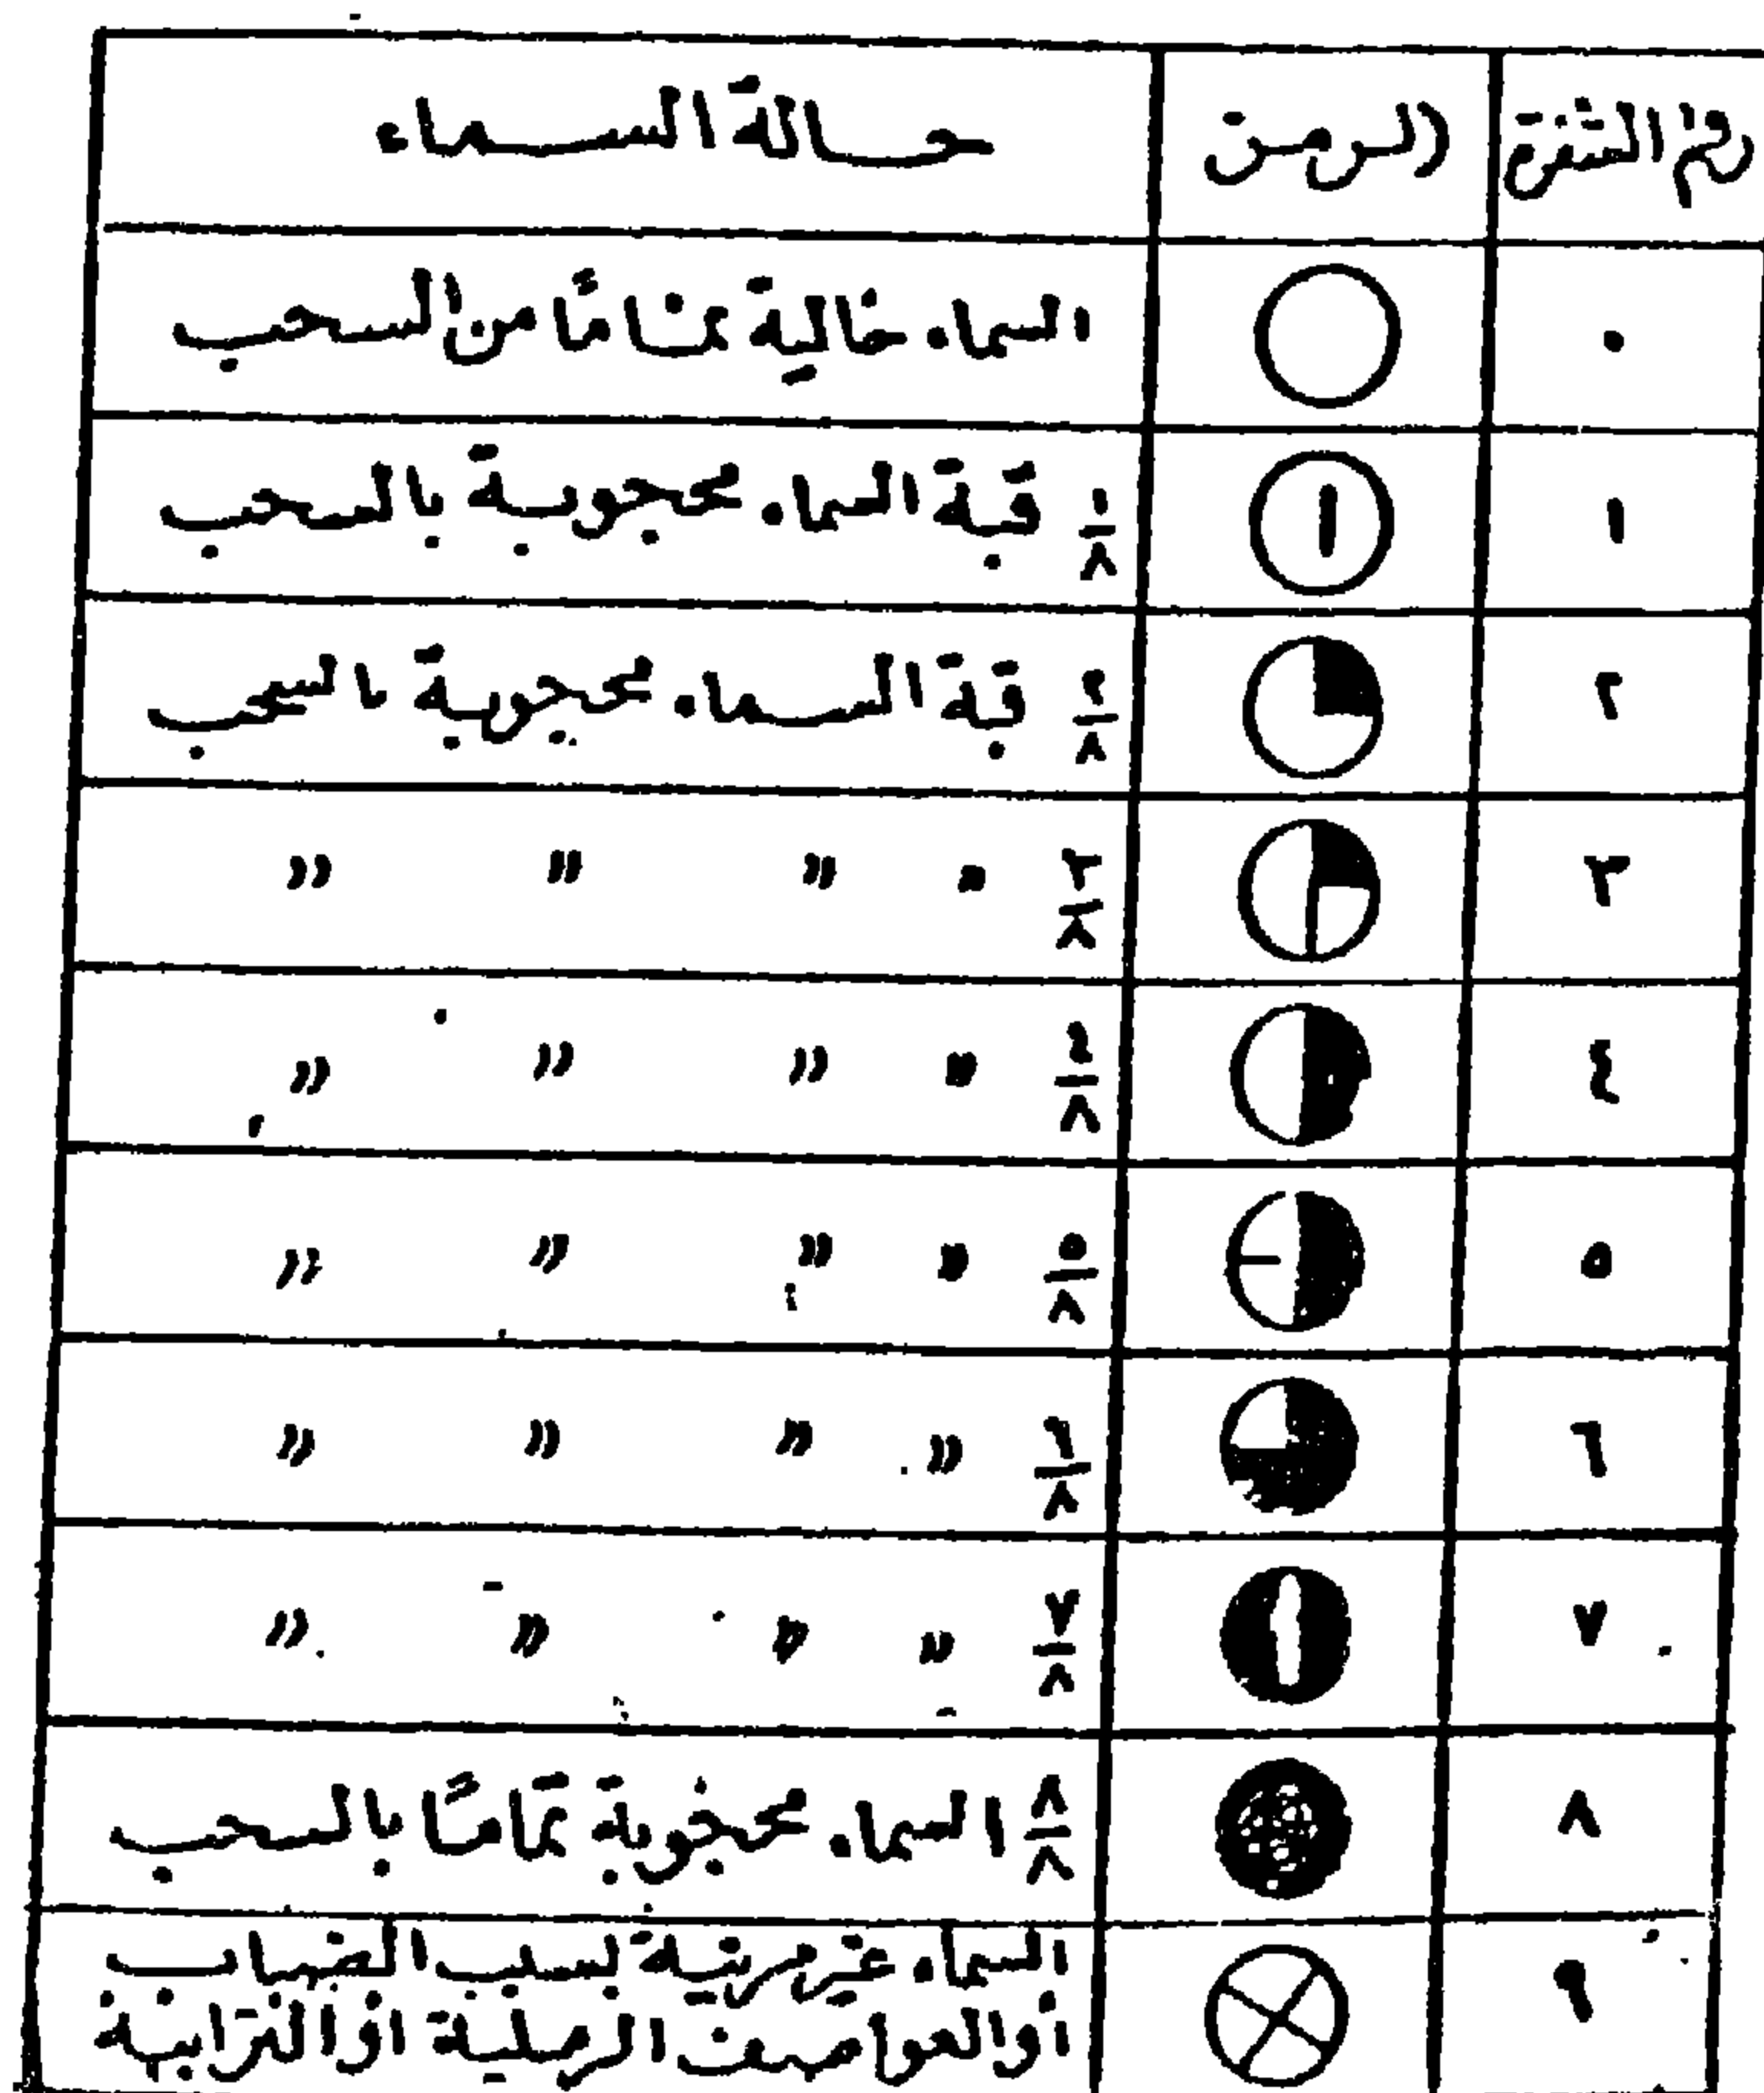 رقم الشفرة الرمز حالة السماء
٠ السماء خالية تماماً من السحب
١ ١/٨ قبة السماء محجوبة بالسحب
٢ ٢/٨ قبة السماء محجوبة بالسحب
٣ ٣/٨ " " " "
٤ ٤/٨ " " " "
٥ ٥/٨ " " " "
٦ ٦/٨ " " " "
٧ ٧/٨ " " " "
٨ ٨/٨ السماء محجوبة تماماً بالسحب
٩ السماء غير مرئية بسبب الضباب
أو العواصف الرملية أو الترابية